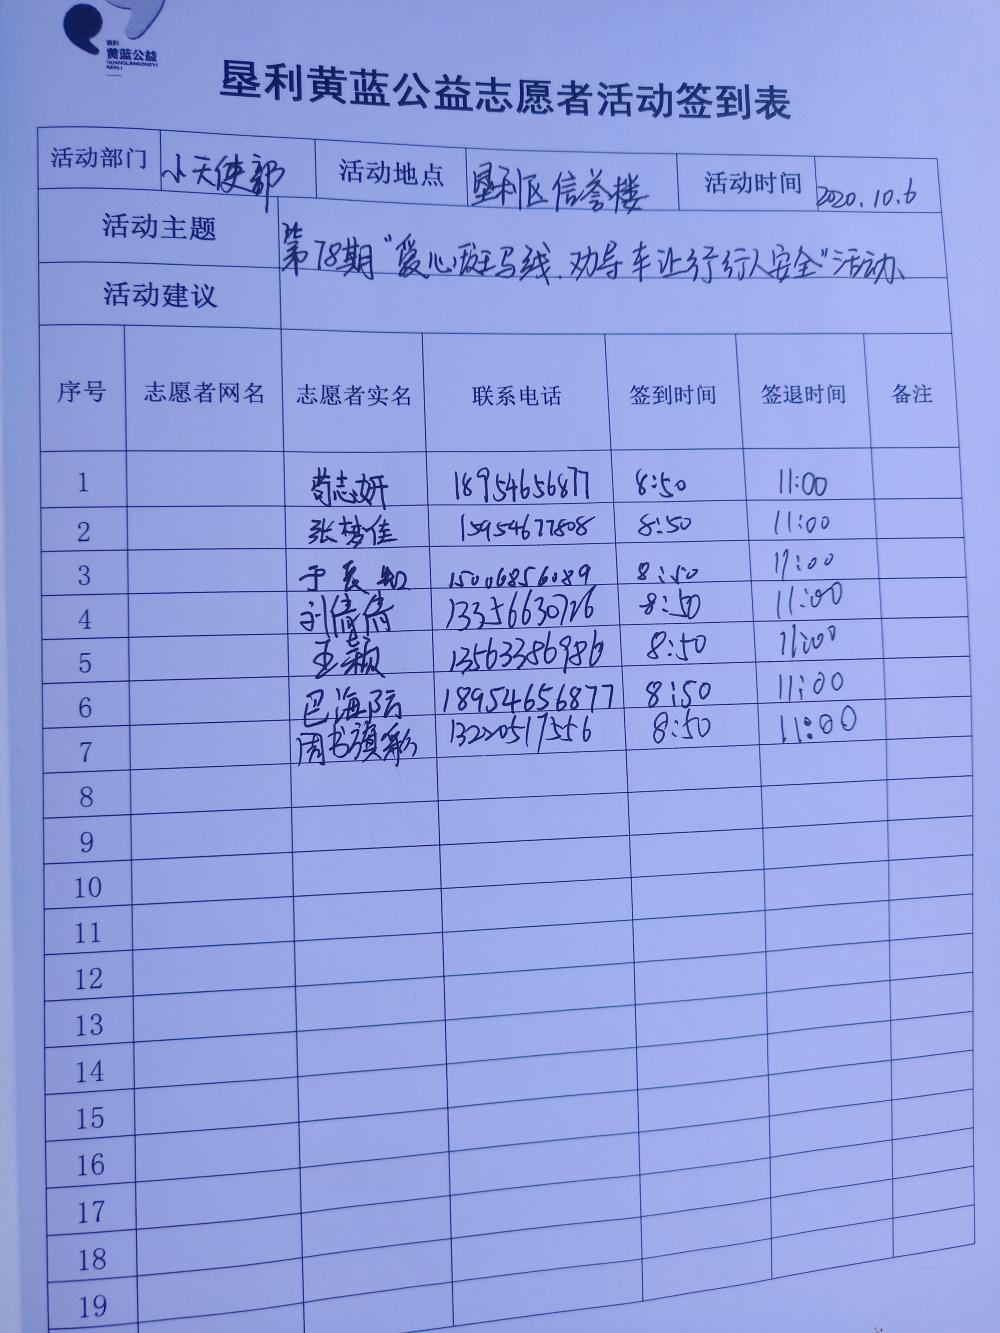 垦利
黄蓝公益
HUANGLANGONGYI
KENLI
垦利黄蓝公益志愿者活动签到表
活动部门 小天使部 活动地点 垦利区信誉楼 活动时间 2020.10.6
活动主题 第78期“爱心斑马线、劝导车让行行人安全”活动
活动建议
序号 志愿者网名 志愿者实名 联系电话 签到时间 签退时间 备注
1 苟志妍 18954656877 8:50 11:00
2 张梦佳 15954677808 8:50 11:00
3 15006856089 8:50 11:00
4 刘倩倩 13356630726 8:50 11:00
5 王颖 13563386986 8:50 11:00
6 巴海防 18954656877 8:50 11:00
7 周书旗彩 13220517556 8:50 11:00
8
9
10
11
12
13
14
15
16
17
18
19